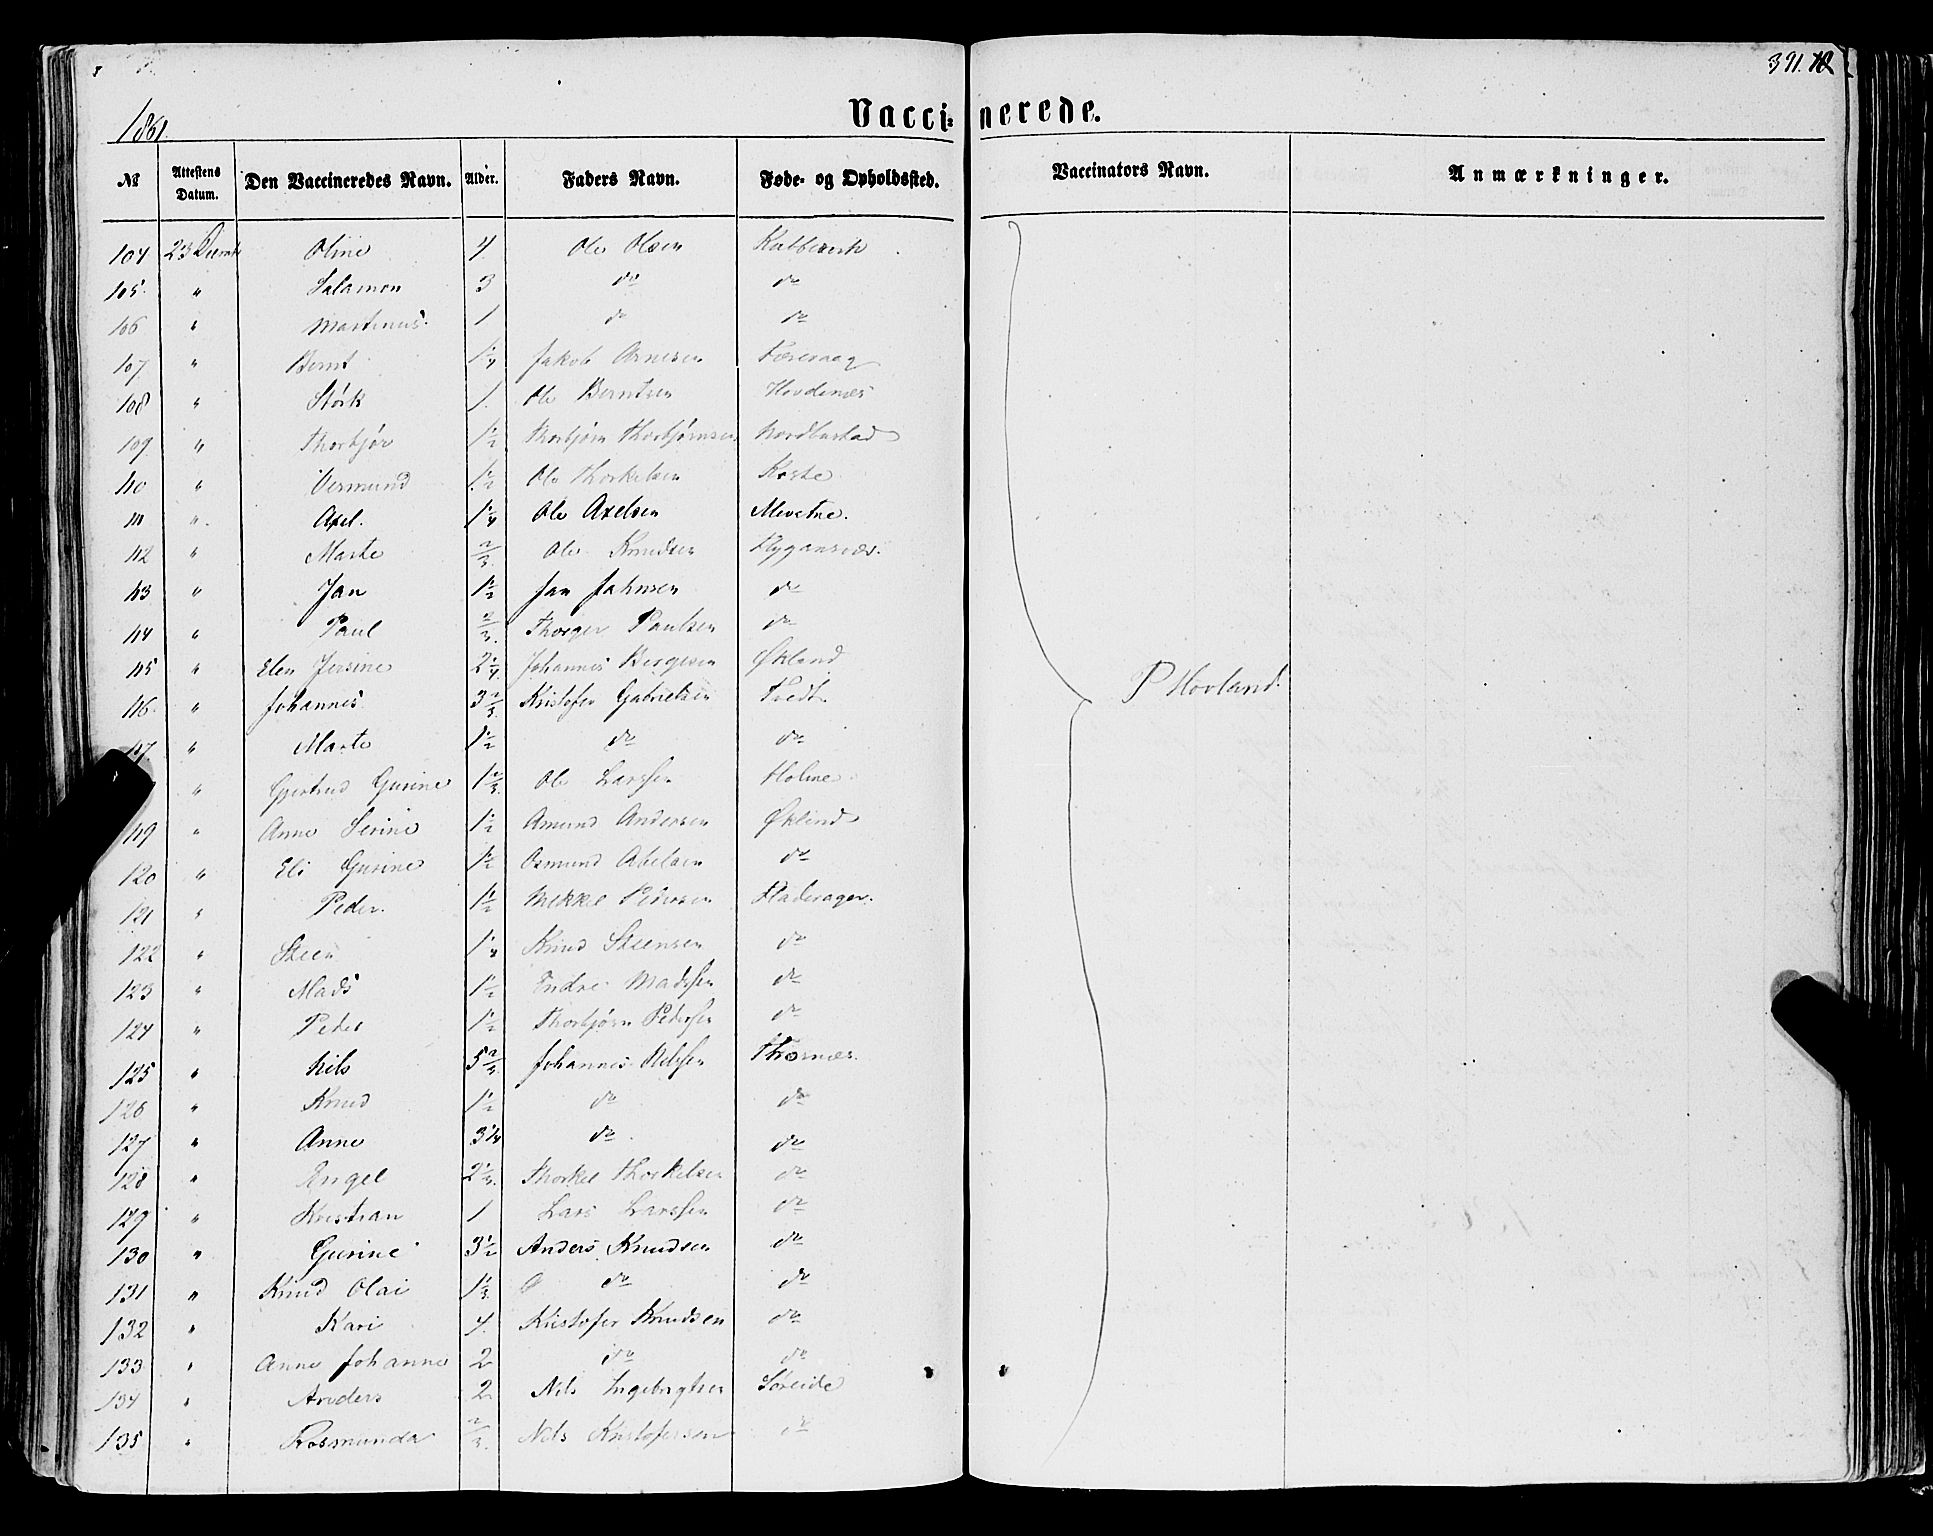 391.
1861.
Vaccinerede.
№ Attestens Datum. Den Vaccineredes Navn. Alder. Faders Navn. Føde- og Opholdssted. Vaccinators Navn. Anmærkninger.
104 23 Decmb Oline 4 Ole Olsen
105. " Salamon 3 do do
106 " Martinus. 1 do do
107 " Bernt 1 1/4 Jakob Arnesen Færevaag
108 " Størk 1. Ole Berntsen Hovdenæs
109 " Thorbjør 1 1/2 Thorbjørn Thorbjørnsen Nordbustad
110 " Vermund 1 1/2 Ole Thorkelsen Koste
111 " Axel. 1 1/4 Ole Axelsen
112 " Marte 2/3. Ole Knudsen Flygansvær.
113 " Jan 1 1/2 Jan Jahnsen do
114 " Paul 2/3. Thorger Paulsen do
115 " Elen Jersine 2 1/4. Johannes Bergesen Økland
116. " Johannes 3 2/3. Kristofer Gabrielsen Tvedt
117. " Marte 1 1/2 do do
" Gjertrud Gurine 1 2/3. Ole Larssen Holme
119 " Anne Serine 1 1/2 Amund Andersen Økland
120 " Eli Gurine 1 1/2 Osmund Abelsen do
121 " Peder. 1 1/2 Mikkel Pedersen Fladerager.
122 " Steen 1 1/4 Knud Steensen do
123 " Mads 1 1/2 Endre Madssen do
124 " Peder 1 1/2 Thorbjørn Pederssen do
125 " Nils 5 2/3 Johannes Nilssen Thornæs.
126 " Knud 1 1/2 do do
127 " Anne 3 1/4 do. do
128 " Angel 2 1/3. Thorkel Thorkelsen do
129 " Kristian 1 Lars Larssen do
130 " Gurine 3 1/2 Anders Knudsen do
131 " Knud Olai 1 1/3. do do
132 " Kari 4. Kristofer Knudsen do
133 " Anne Johanne 2 do do
134 " Anders 2 Nils Ingebrigtsen Søreide
135 " Rosmunda 2/3. Nils Kristofersen do
P Hovland.